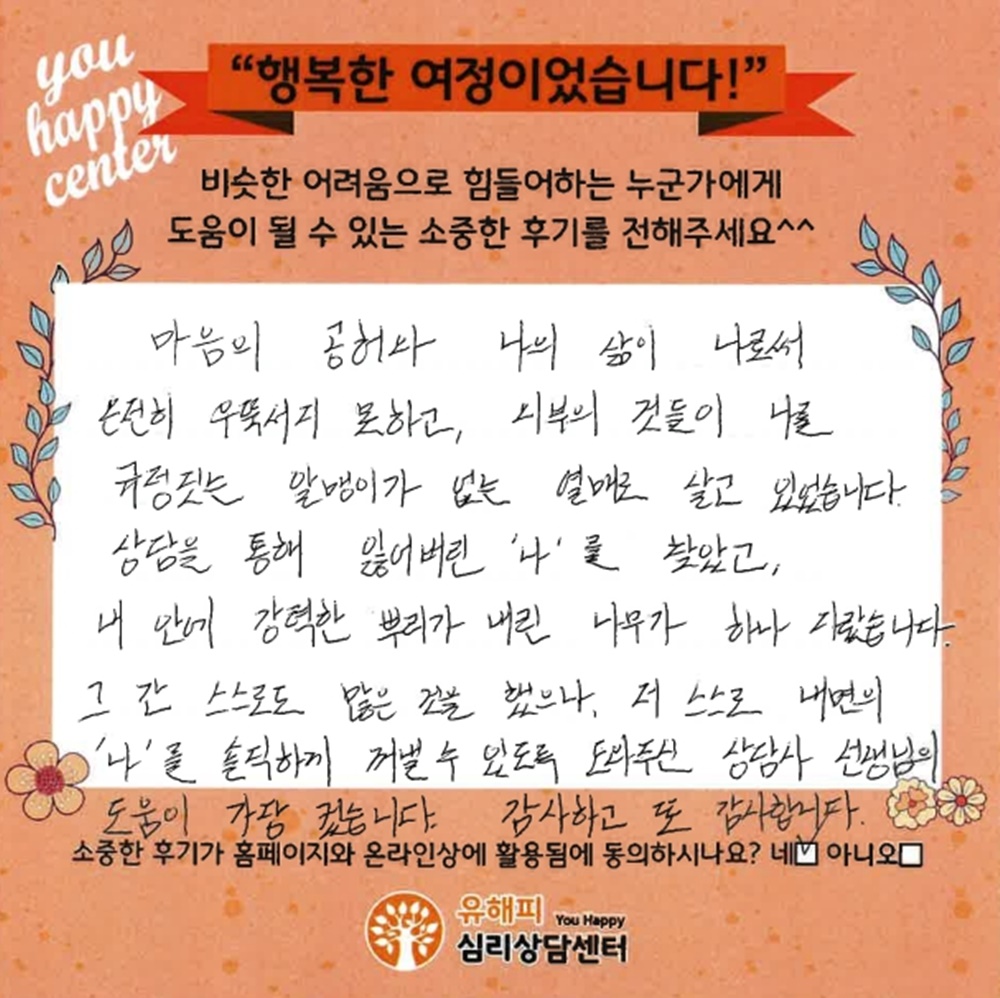 you
happy
center
“행복한 여정이었습니다!”
비슷한 어려움으로 힘들어하는 누군가에게
도움이 될 수 있는 소중한 후기를 전해주세요^^
마음의 공허와 나의 삶이 나로써
온전히 우뚝서지 못하고, 외부의 것들이 나를
규정짓는 알맹이가 없는 열매로 살고 있었습니다.
상담을 통해 잃어버린 '나'를 찾았고,
내 안에 강력한 뿌리가 내린 나무가 하나 자랐습니다.
그 간 스스로도 많은 것을 했으나, 저 스스로 내면의
'나'를 솔직하게 꺼낼 수 있도록 도와주신 상담사 선생님의
도움이 가장 컸습니다. 감사하고 또 감사합니다.
소중한 후기가 홈페이지와 온라인상에 활용됨에 동의하시나요? 네☑ 아니오☐
유해피 You Happy
심리상담센터